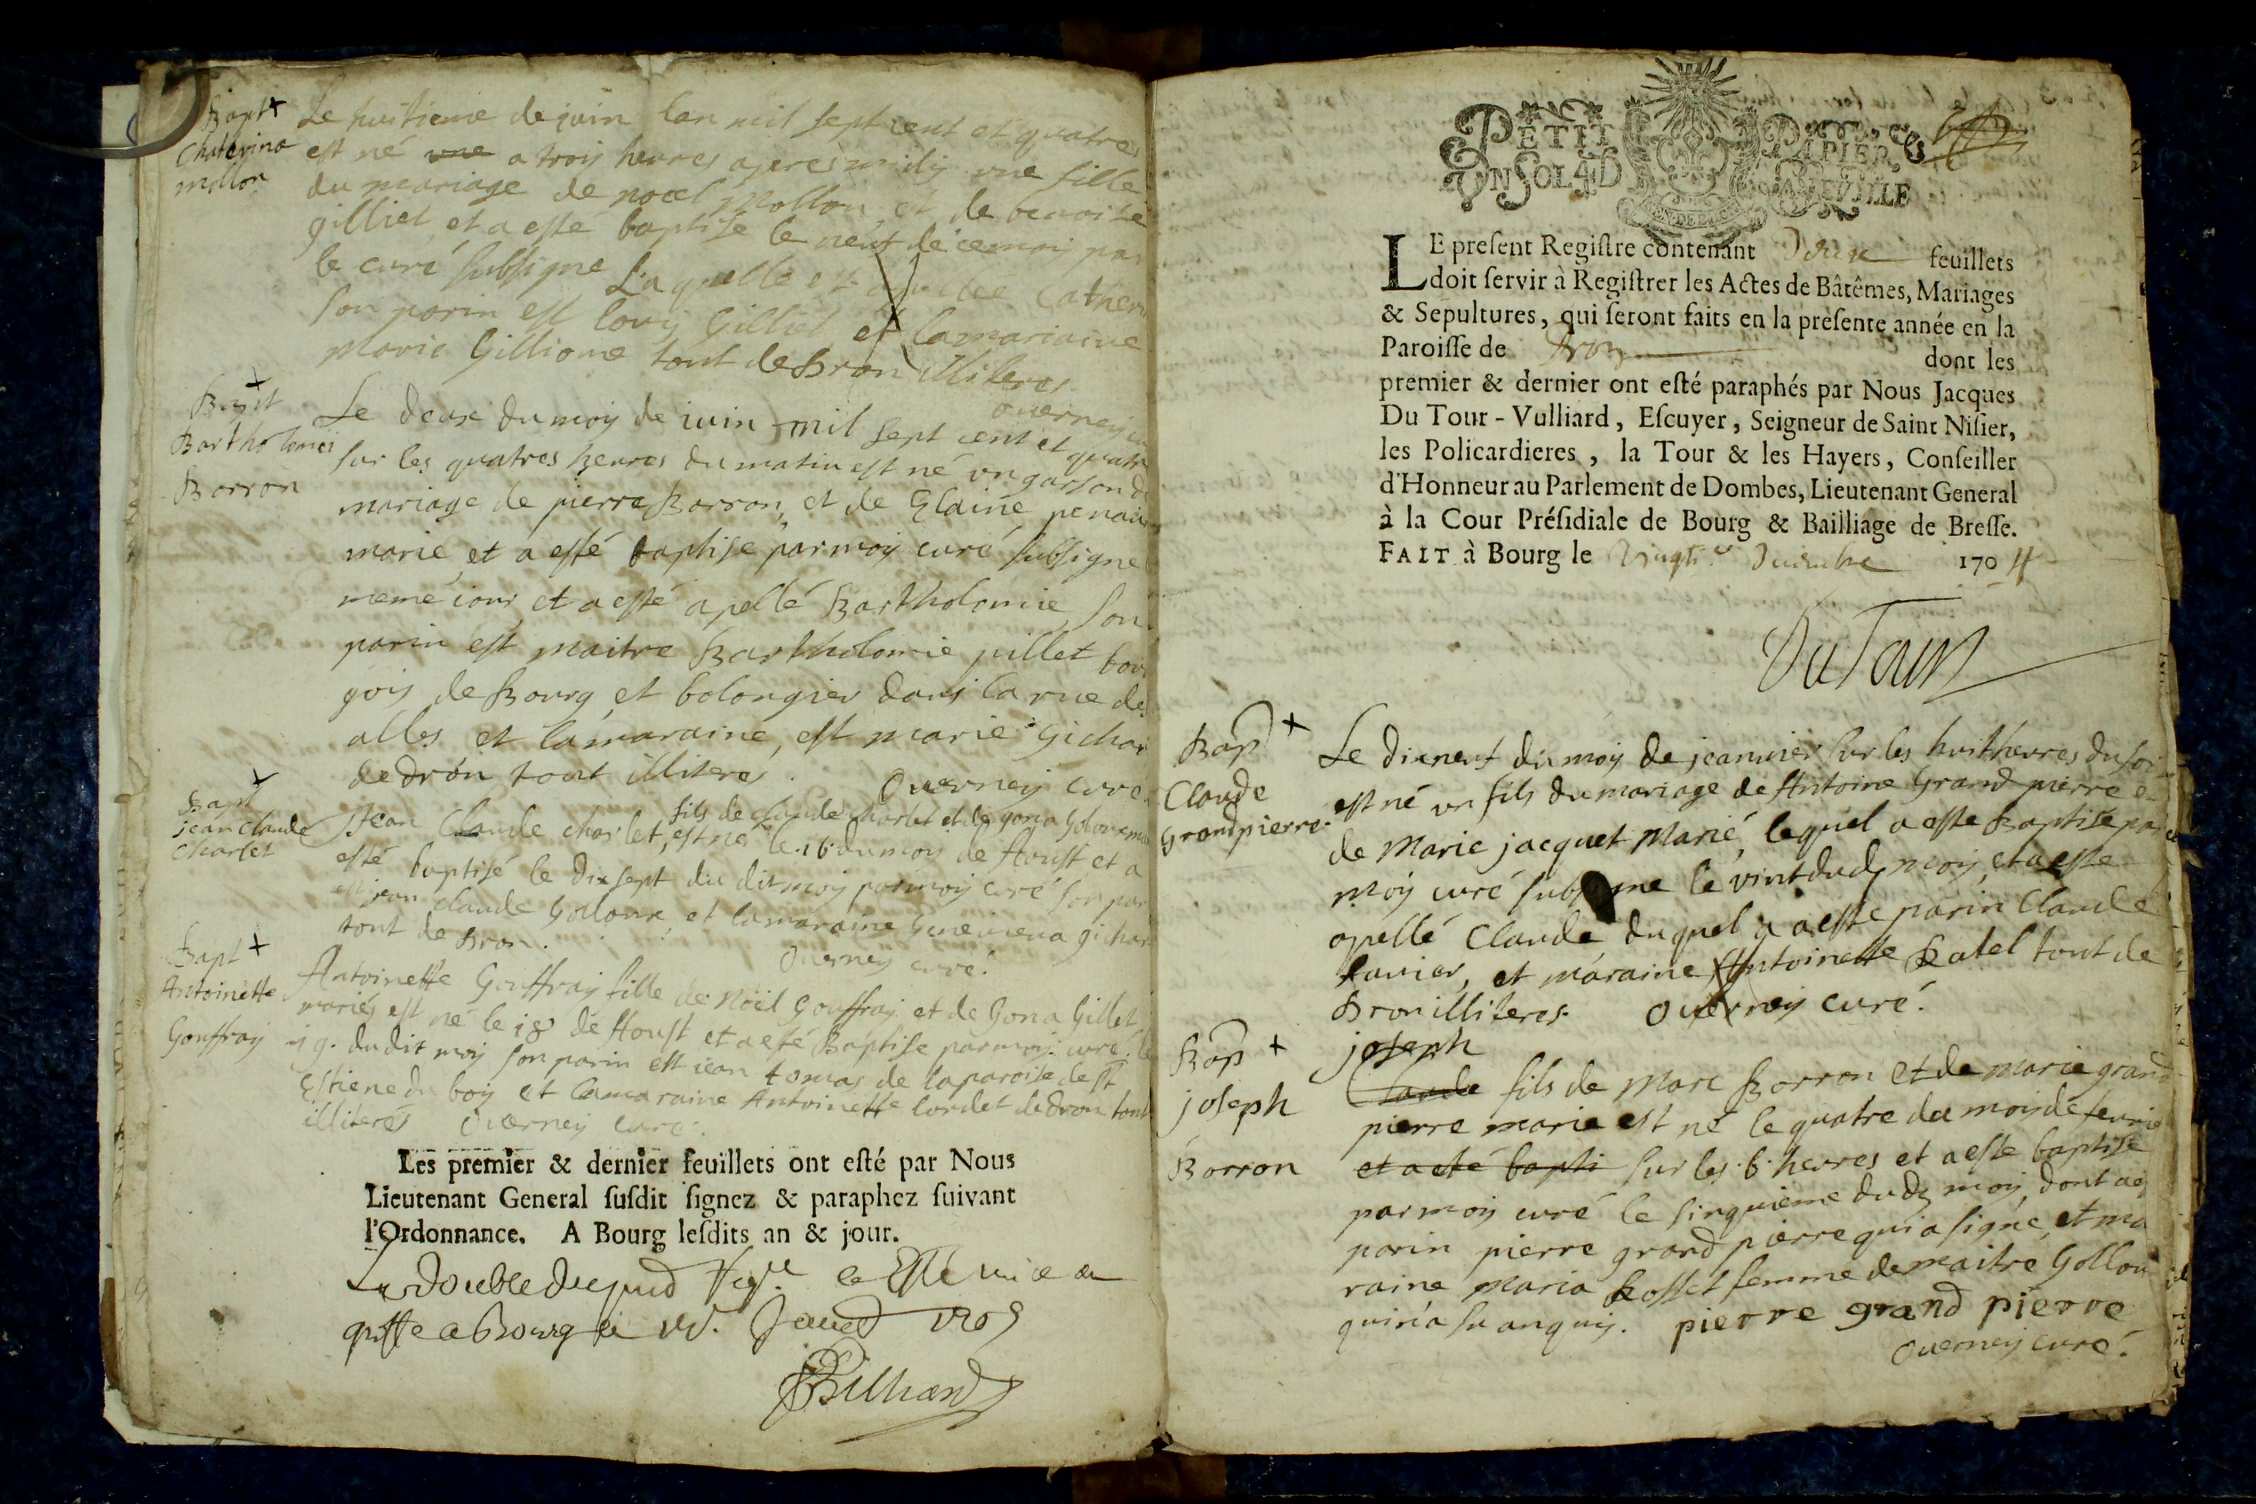 Bapt +
Chaterina
mollon
Le huitieme de juin lan mil sept cent et quatres
est né une a trois heures apres midy une fille
du mariage de noel Mollon et de benoite
gilliet et a esté baptise le neuf de ce moi par
le curé subsigne Laquelle est Catheri
son parin est louy Gilliet et la maraine
Marie Gillione tout de Bron illiteres
ouerney cu
Bapt
Bartholomei
Borron
Le deux du moy de iuin mil sept cent et quatr
sur les quatres heures du matin est né un garson d
mariage de pierre Borron, et de Glaine penai
marie et a esté baptise par moy curé subsigne
meme iour et a esté apellé Bartholomie, son
parin est maitre Bartholomie pillet bour
gois de Bourg et bolongier dans la rue des
alles et la maraine, est marie Gichar
de dron tout illiteres.
Ouerney curé
Bapt
jean Claude
Charlet
fils de claude charlet et de gona Goloneme
Jean Claude charlet, est nés le .16. du moy de Aoust et a
esté baptisé le dix sept du dit moy par moy curé son par
est jean claude Golloux et la maraine Geneuieua gichar
tout de Bron.
Ouerney curé.
Bapt +
Antoinette
Gouffray
Antoinette Gouffray fille de Noïel gouffray et de Gona Gillet
mariés est né le 18 de Aoust et a eté Baptise par moy curé le
19. du dit moy son parin est iean tomas de la paroise de St
Estiene du boy et la maraine Antoinette Cordet de dron tout
illiteres Ouerney curé.
Les premier & dernier feuillets ont esté par Nous
Lieutenant General susdit signez & paraphez suivant
l'Ordonnance. A Bourg lesdits an & jour.
Le double du pnt Regre a Esté mis au
greffe a Bourg le 1705
Billiard
PETIT PAPIER
UN SOL 4 D LA FEUILLE
LE present Registre contenant Deux feuillets
doit servir à Registrer les Actes de Bâtêmes, Mariages
& Sepultures, qui seront faits en la presente année en la
Paroisse de dron dont les
premier & dernier ont esté paraphés par Nous Jacques
Du Tour - Vulliard, Escuyer, Seigneur de Saint Nisier,
les Policardieres, la Tour & les Hayers, Conseiller
d'Honneur au Parlement de Dombes, Lieutenant General
à la Cour Présidiale de Bourg & Bailliage de Bresse.
FAIT à Bourg le vingte Decembre 1704
DuTour
Bap +
Claude
Grandpierre.
Le dixneuf du moy de jeanuier sur les huit heures du soi
est né un fils du mariage de Antoine Grand pierre e
de Marie jacquet Marié, lequel a esté Baptisé par
moy curé subsigne le vint dud moy, et a esté
apellé Claude duquel a esté parin Claude
tauier, et maraine Antoinette Ratel tout de
Bron illiteres. Ouerney curé.
Bap +
joseph
Borron
joseph
Claude fils de Marc Borron et de marie grand
pierre marie est né le quatre du mois de feurie
et a eté bapti sur les .6. heures et a esté baptisé
par moy curé le sinquieme dud moy, dont a eſ
parin pierre grand pierre qui a signé, et ma
raine Maria Rosset femme de maitre Gollou
qui n'a su anquis. pierre grand pierre
Ouerney curé.